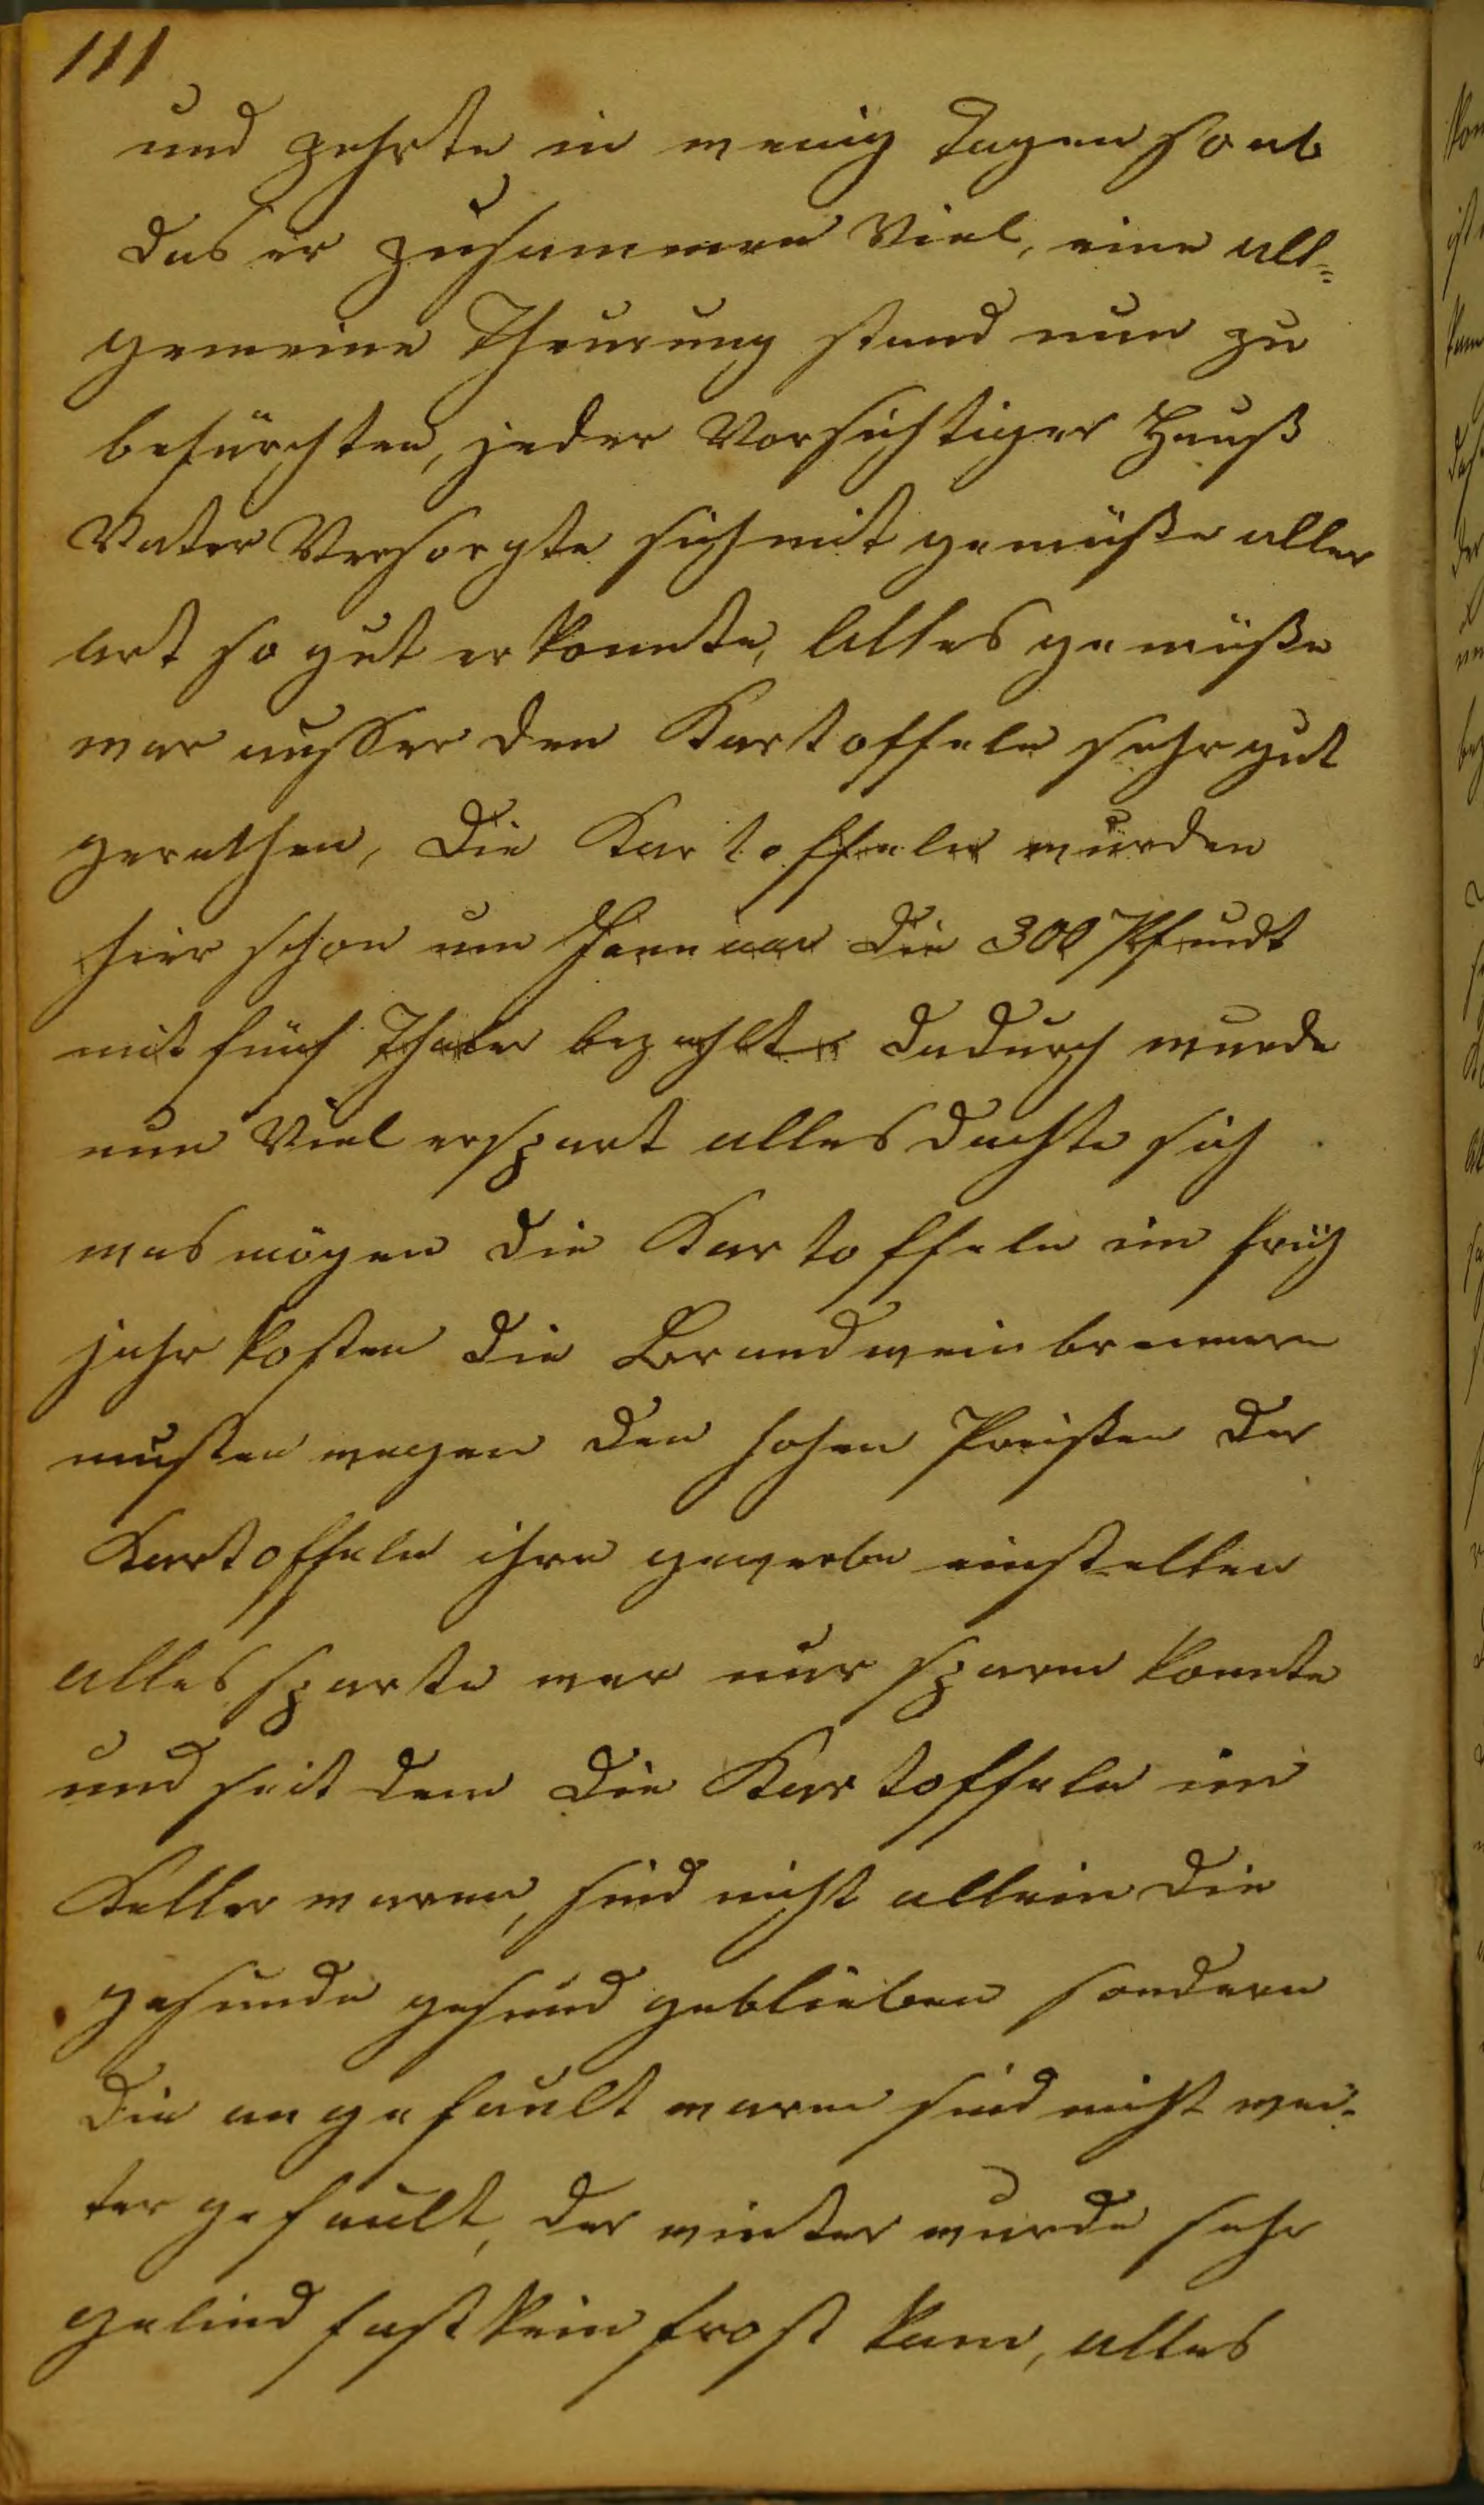 111
und zehrte in wenig Tagen so ab
das er zusammen Viel, eine all=
gemeine Theurung stand nun zu
befürchten, jeder Vorsichtiger Hauß
Vater Versorgte sich mit gemüße aller
art so gut er konnte, Alles gemüße
war ausser den Kartoffeln sehr gut
gerathen, Die Kartoffeln wurden
hier schon um Januar die 300 Pfundt
mit fünf Thaler bezahlt dadurch wurde
nun Viel erspart alles dachte sich
was mögen die Kartoffeln im früh
jahr kosten die Brandweinbrenner
musten wegen den hohen Preißen der
Kartoffeln ihre gewerbe einstellen
alles sparte wer nur sparen konnte
und seit dem die Kartoffeln im
Keller waren, sind nicht allein die
gesunde gesund geblieben sondern
Die angefault waren sind nicht wei-
ter gefault, der winter wurde sehr
gelind fast kein frost kam, alles